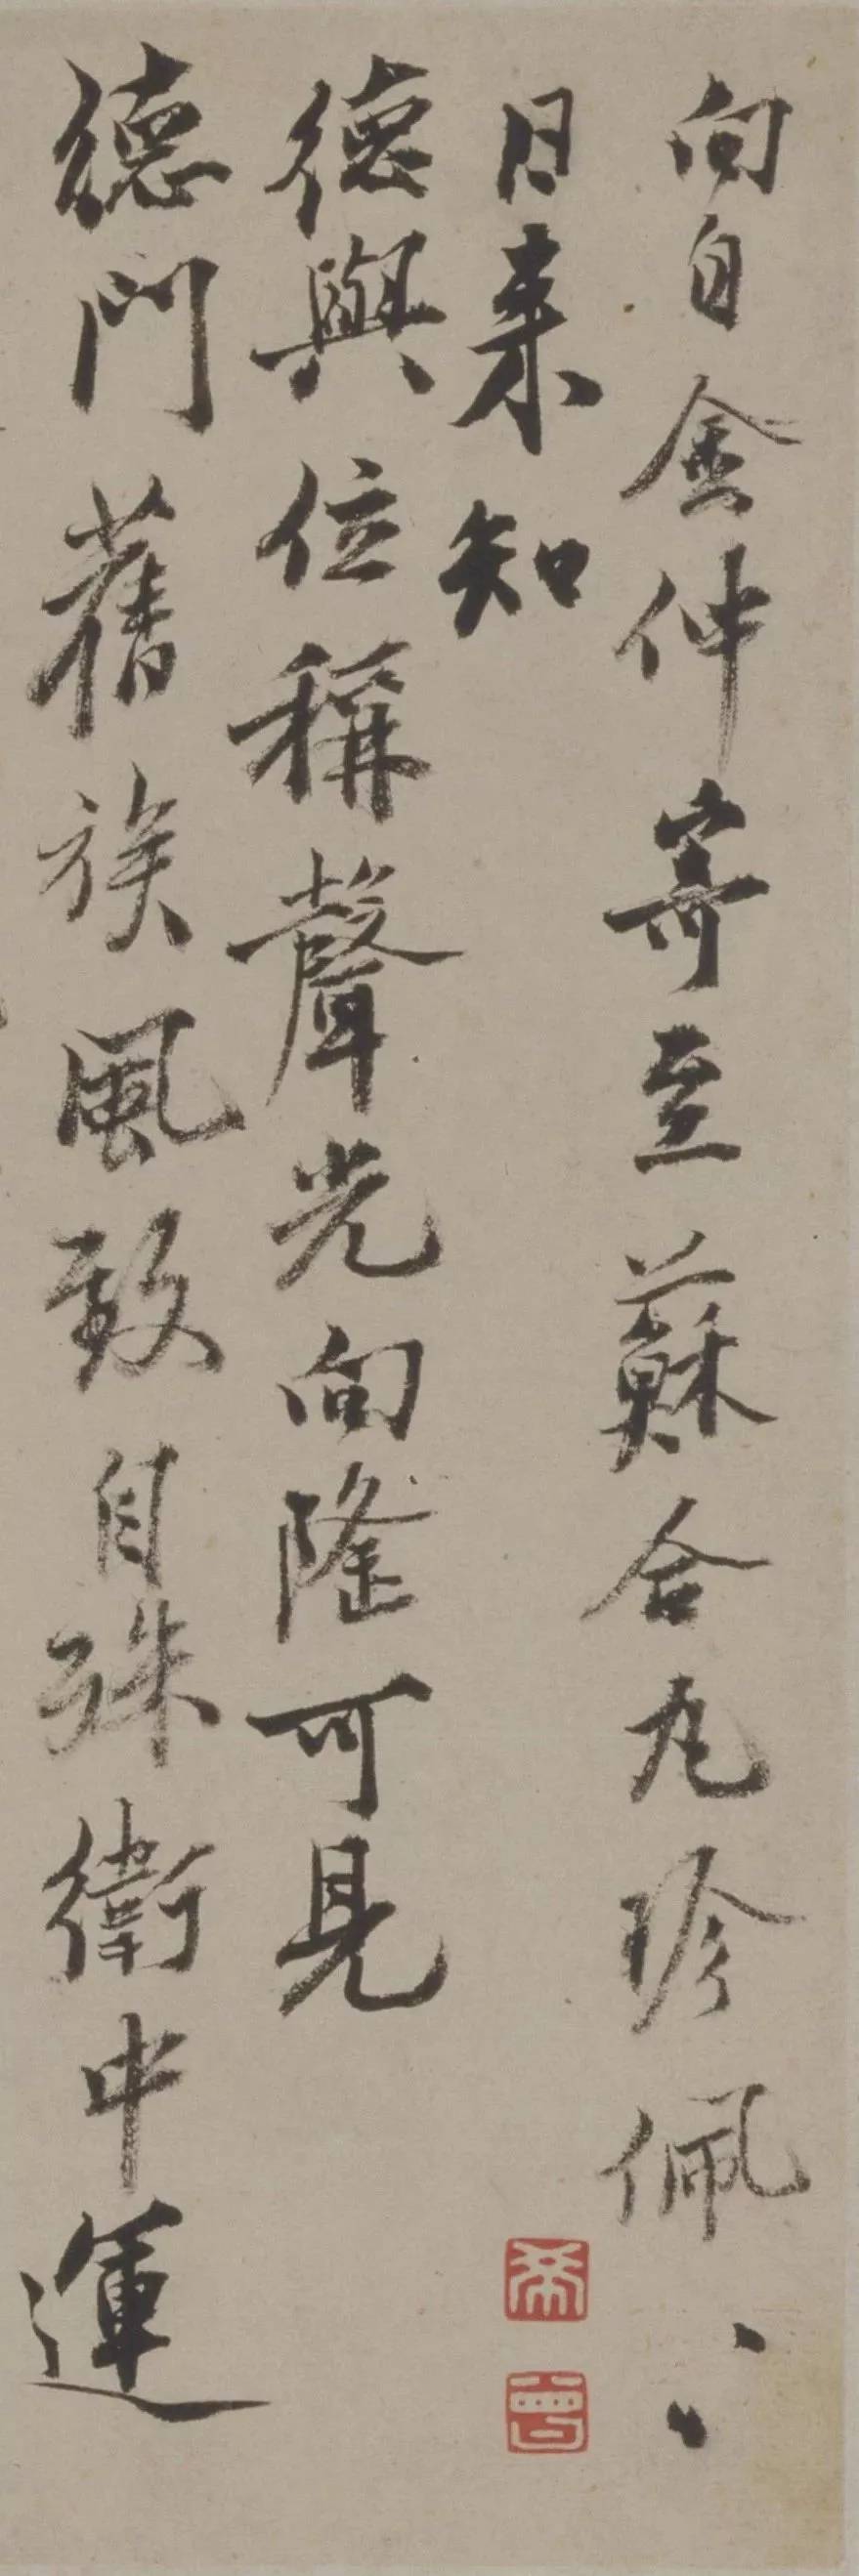 向自金仲寄至蘇合丸珍佩〻
日來知
德與位稱聲光向隆可見
德門舊族風致自殊衛中運
希
曾